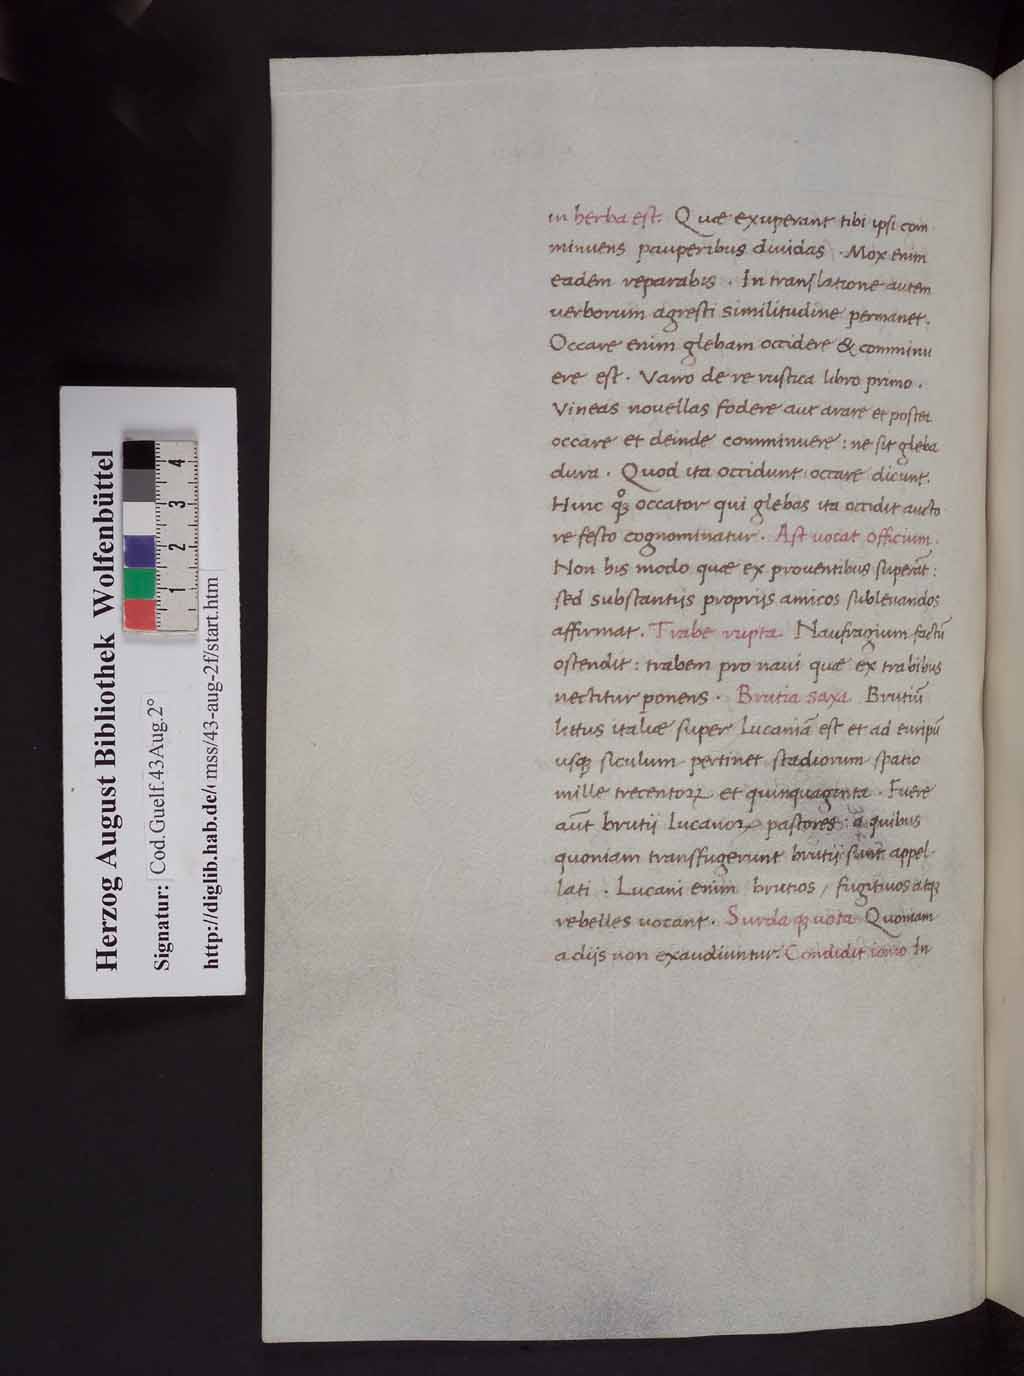 in herba est. Quæ exuperant tibi ipsi com
minuens pauperibus diuidas . Mox enim
eadem reparabis . In translatione autem
uerborum agresti similitudine permanet.
Occare enim glebam occidere & comminu
ere est . Varro de re rustica libro primo .
Vineas nouellas fodere aut arare et postea
occare et deinde comminuere : ne sit gleba
dura . Quod ita occidunt occare dicunt.
Hinc quoq; occator qui glebas ita occidit aucto
re festo cognominatur . Ast uocat officium.
Non his modo quæ ex prouentibus superāt :
sed substantijs proprijs amicos subleuandos
affirmat . Trabe rupta. Naufragium factū
ostendit : trabem pro naui quæ ex trabibus
nectitur ponens . Brutia saxa Brutiū
littus italiæ super Lucaniā est et ad euripū
usq; siculum pertinet stadiorum spatio
mille trecentoꝝ et quinquaginta . Fuere
aūt brutij lucanoꝝ pastores : a quibus
quoniam transfugerunt brutij sunt appel
lati . Lucani enim brutios / fugitiuos atq;
rebelles uocant . Surdaq; uota Quoniam
a dijs non exaudiuntur. Condidit ionio In
Herzog August Bibliothek Wolfenbüttel
Signatur: Cod.Guelf.43Aug.2°
http://diglib.hab.de/mss/43-aug-2f/start.htm
1 2 3 4